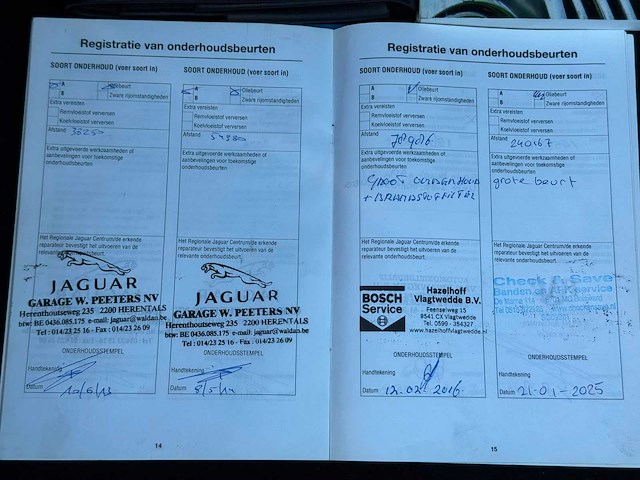 Registratie van onderhoudsbeurten
SOORT ONDERHOUD (voer soort in)
A Oliebeurt
B Zware rijomstandigheden
Extra vereisten
Remvloeistof verversen
Koelvloeistof verversen
Afstand 38250
Extra uitgevoerde werkzaamheden of
aanbevelingen voor toekomstige
onderhoudsbeurten
Het Regionale Jaguar Centrum/de erkende
reparateur bevestigt het uitvoeren van de
relevante onderhoudsbeurt.
JAGUAR
GARAGE W. PEETERS NV
Herenthoutseweg 235 2200 HERENTALS
btw: BE 0436.085.175 e-mail: jaguar@waldan.be
Tel : 014/23 25 16 - Fax : 014/23 26 09
ONDERHOUDSSTEMPEL
Handtekening
Datum
14
SOORT ONDERHOUD (voer soort in)
A Oliebeurt
B Zware rijomstandigheden
Extra vereisten
Remvloeistof verversen
Koelvloeistof verversen
Afstand
Extra uitgevoerde werkzaamheden of
aanbevelingen voor toekomstige
onderhoudsbeurten
Het Regionale Jaguar Centrum/de erkende
reparateur bevestigt het uitvoeren van de
relevante onderhoudsbeurt.
JAGUAR
GARAGE W. PEETERS NV
Herenthoutseweg 235 2200 HERENTALS
btw: BE 0436.085.175 e-mail: jaguar@waldan.be
Tel : 014/23 25 16 - Fax : 014/23 26 09
ONDERHOUDSSTEMPEL
Handtekening
Datum 8/5/14
Registratie van onderhoudsbeurten
SOORT ONDERHOUD (voer soort in)
A Oliebeurt
B Zware rijomstandigheden
Extra vereisten
Remvloeistof verversen
Koelvloeistof verversen
Afstand 78986
Extra uitgevoerde werkzaamheden of
aanbevelingen voor toekomstige
onderhoudsbeurten
GROOT ONDERHOUD
+ BRANDSTOFFILTER
Het Regionale Jaguar Centrum/de erkende
reparateur bevestigt het uitvoeren van de
relevante onderhoudsbeurt.
BOSCH
Service
Hazelhoff
Vlagtwedde B.V.
Feenselweg 15
9541 CX Vlagtwedde
Tel. 0599 - 354327
www.hazelhoffvlagtwedde.nl
ONDERHOUDSSTEMPEL
Handtekening
Datum 12.02.2016
15
SOORT ONDERHOUD (voer soort in)
A Oliebeurt
B Zware rijomstandigheden
Extra vereisten
Remvloeistof verversen
Koelvloeistof verversen
Afstand 240167
Extra uitgevoerde werkzaamheden of
aanbevelingen voor toekomstige
onderhoudsbeurten
grote beurt
Het Regionale Jaguar Centrum/de erkende
reparateur bevestigt het uitvoeren van de
relevante onderhoudsbeurt.
Check & Save
Banden
ONDERHOUDSSTEMPEL
Handtekening
Datum 21-01-2025